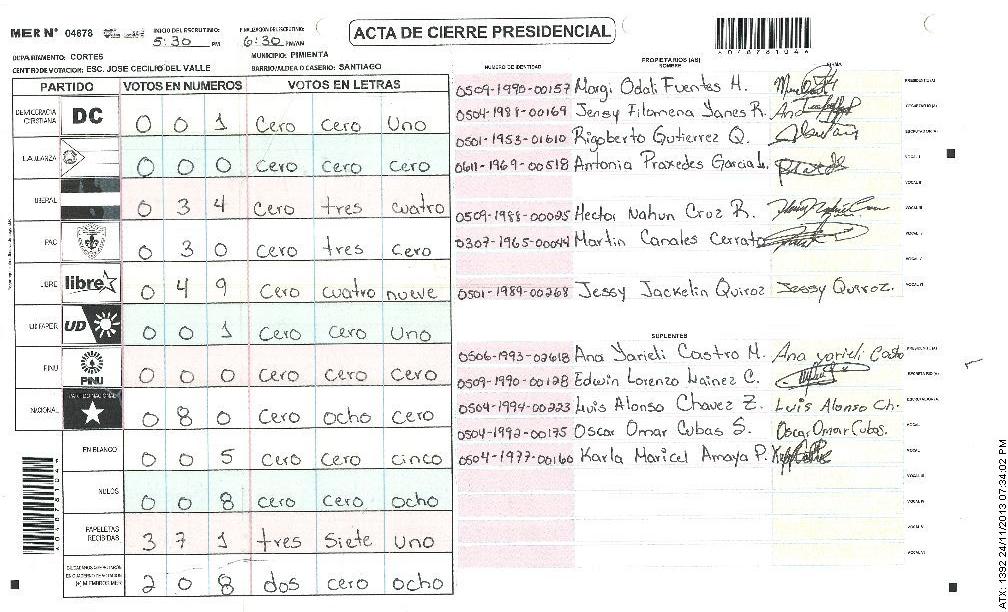 MER N° 04878 INICIO DEL ESCRUTINIO: 5:30 PM FINALIZACION DEL ESCRUTINIO: 6:30 PM/AM
ACTA DE CIERRE PRESIDENCIAL
DEPARTAMENTO: CORTES MUNICIPIO: PIMIENTA
CENTRO DE VOTACION: ESC. JOSE CECILIO DEL VALLE BARRIO/ALDEA O CASERIO: SANTIAGO
PARTIDO VOTOS EN NUMEROS VOTOS EN LETRAS
DEMOCRACIA CRISTIANA DC 0 0 1 Cero Cero Uno
LA ALIANZA 0 0 0 Cero Cero Cero
LIBERAL 0 3 4 Cero tres cuatro
PAC 0 3 0 Cero tres Cero
LIBRE libre 0 4 9 Cero cuatro nueve
UD FAPER UD 0 0 1 Cero Cero Uno
PINU PINU 0 0 0 Cero Cero Cero
NACIONAL PARTIDO NACIONAL 0 8 0 Cero ocho Cero
EN BLANCO 0 0 5 Cero Cero cinco
NULOS 0 0 8 Cero Cero ocho
PAPELETAS RECIBIDAS 3 7 1 tres Siete Uno
2 0 8 dos cero ocho
PROPIETARIOS (AS)
NUMERO DE IDENTIDAD NOMBRE FIRMA
0509-1990-00157 Margi Odali Fuentes H. PRESIDENTE (A)
0504-1988-00169 Jensy Filomena Yanes R. SECRETARIO (A)
0501-1953-01610 Rigoberto Gutierrez Q. ESCRUTADOR (A)
0611-1969-00518 Antonia Praxedes Garcia L. VOCAL I
VOCAL II
0509-1988-00025 Hector Nahun Cruz R. VOCAL III
0307-1965-00044 Martin Canales Cerrato VOCAL IV
VOCAL V
0501-1989-00268 Jessy Jackelin Quiroz Jessy Quiroz. VOCAL VI
SUPLENTES
0506-1993-02618 Ana Yarieli Castro M. Ana yarieli Casto PRESIDENTE (A)
0509-1990-00128 Edwin Lorenzo Lainez C. SECRETARIO (A)
0504-1994-00223 Luis Alonso Chavez Z. Luis Alonso Ch. ESCRUTADOR (A)
0504-1992-00175 Oscar Omar Cubas S. Oscar Omar Cubas. VOCAL I
0504-1977-00160 Karla Maricel Amaya P. VOCAL II
VOCAL III
VOCAL IV
VOCAL V
VOCAL VI
ATX: 1392 24/11/2013 07:34:02 PM